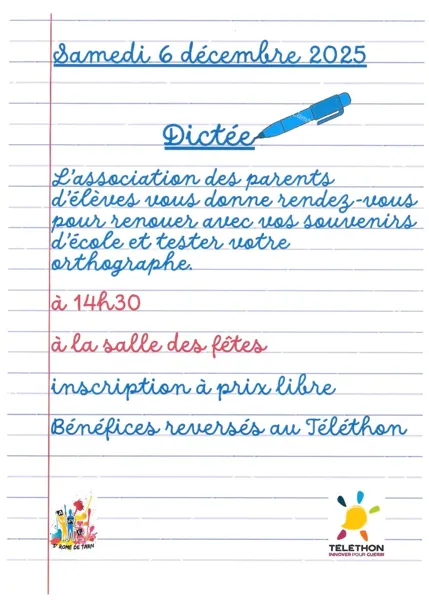 Samedi 6 décembre 2025
Dictée
L'association des parents
d'élèves vous donne rendez-vous
pour renouer avec vos souvenirs
d'école et tester votre
orthographe.
à 14h30
à la salle des fêtes
inscription à prix libre
Bénéfices reversés au Téléthon
ST ROME DE TARN
TELETHON
INNOVER POUR GUERIR